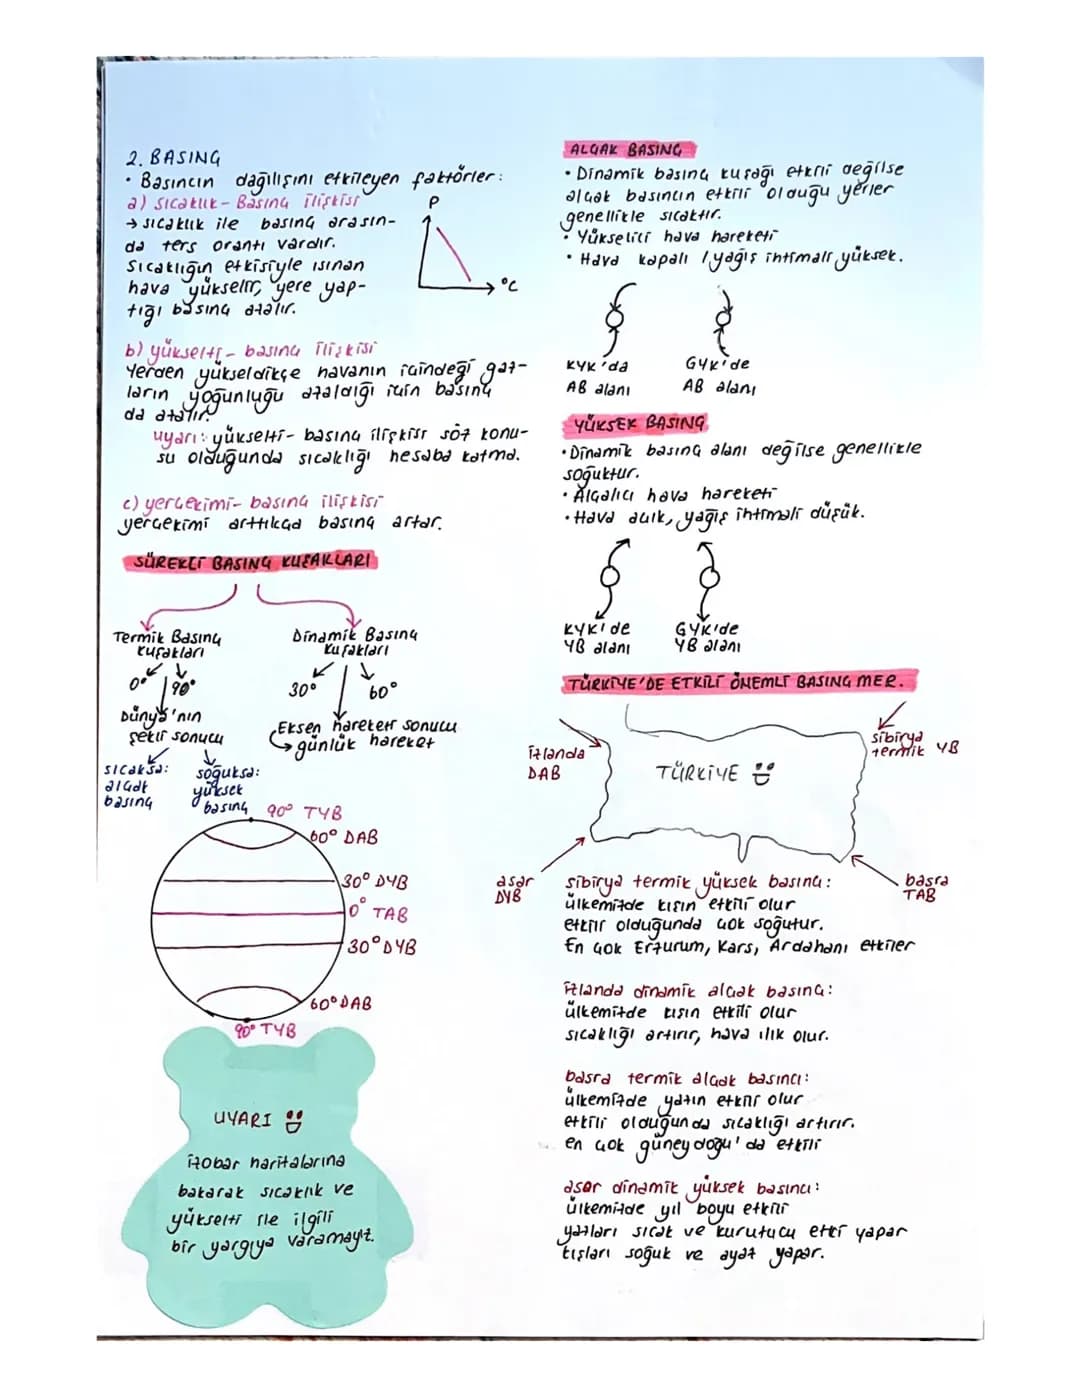 2. BASINÇ
• Basıncın dağılışını etkileyen faktörler:
a) sıcaklık - Basınç ilişkisi
→ sıcaklık ile basınç arasın-
da ters orantı vardır.
Sıcaklığın etkisiyle ısınan
hava yükselir, yere yap-
tığı basınç azalır.
P
°C
b) yükselti - basınç ilişkisi
Yerden yükseldikçe havanın içindeği gaz-
ların yoğunluğu azaldığı için basınç
da azalır.
uyarı: yükselti - basınç ilişkisi söz konu-
su olduğunda sıcaklığı hesaba katma.
c) yerçekimi - basınç ilişkisi
yerçekimi arttıkça basınç artar.
SÜREKLİ BASINÇ KUŞAKLARI
Termik Basınç
kuşakları
0° 90°
Dünya'nın
şekli sonucu
sıcaksa:
alçak
basınç
soğuksa:
yüksek
basınç
Dinamik Basınç
kuşakları
30° 60°
Eksen hareketi sonucu
günlük hareket
90° TYB
60° DAB
30° DYB
0° TAB
30° DYB
60° DAB
90° TYB
UYARI
izobar haritalarına
bakarak sıcaklık ve
yükselti ile ilgili
bir yargıya varamayız.
ALÇAK BASINÇ
• Dinamik basınç kuşağı etkili değilse
alçak basıncın etkili olduğu yerler
genellikle sıcaktır.
• Yükselici hava hareketi
• Hava kapalı / yağış ihtimali yüksek.
KYK'da
AB alanı
GYK'de
AB alanı
YÜKSEK BASINÇ
• Dinamik basınç alanı değilse genellikle
soğuktur.
• Alçalıcı hava hareketi
• Hava açık, yağış ihtimali düşük.
KYK'de
YB alanı
GYK'de
YB alanı
TÜRKİYE'DE ETKİLİ ÖNEMLİ BASINÇ MER.
izlanda
DAB
sibirya
termik YB
TÜRKİYE
asor
DYB
basra
TAB
sibirya termik yüksek basıncı:
ülkemizde kışın etkili olur
etkili olduğunda çok soğutur.
En çok Erzurum, Kars, Ardahanı etkiler
izlanda dinamik alçak basınç:
ülkemizde kışın etkili olur
sıcaklığı artırır, hava ılık olur.
basra termik alçak basıncı:
ülkemizde yazın etkili olur
etkili olduğunda sıcaklığı artırır.
en çok güneydoğu'da etkili
asor dinamik yüksek basıncı:
ülkemizde yıl boyu etkili
yazları sıcak ve kurutucu etki yapar
kışları soğuk ve ayaz yapar.